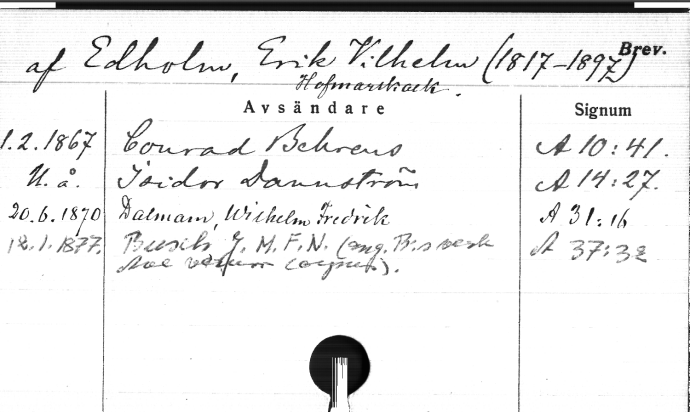 af Edholm, Erik Vilhelm (1817–1897) Brev.
Hofmarskalk.
Avsändare Signum
1.2.1867 Conrad Behrens A 10:41.
U. å. Isidor Dannström A 14:27.
20.6.1870 Dalman, Wilhelm Fredrik A 31:16
18.1.1877. J. M. F. N. (ang. B:s verk A 37:32